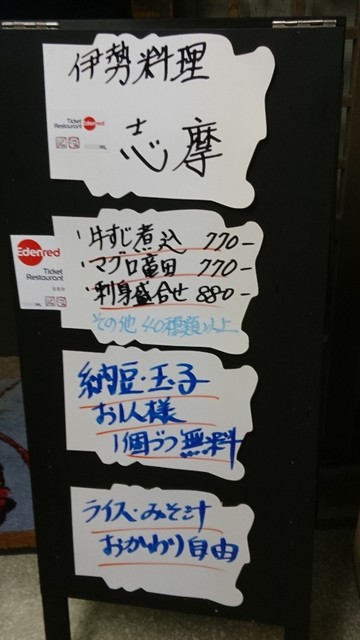 伊勢料理
Ticket
Restaurant
Edenred
志摩
・牛すじ煮込 770-
・マグロ竜田 770-
・刺身盛合せ 880-
その他 40種類以上
Edenred
Ticket
Restaurant
納豆・玉子
お1人様
1個づつ無料
ライス・みそ汁
おかわり自由